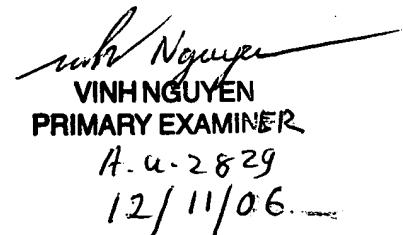 Vinh Nguyen
VINH NGUYEN
PRIMARY EXAMINER
A.U. 2829
12/11/06